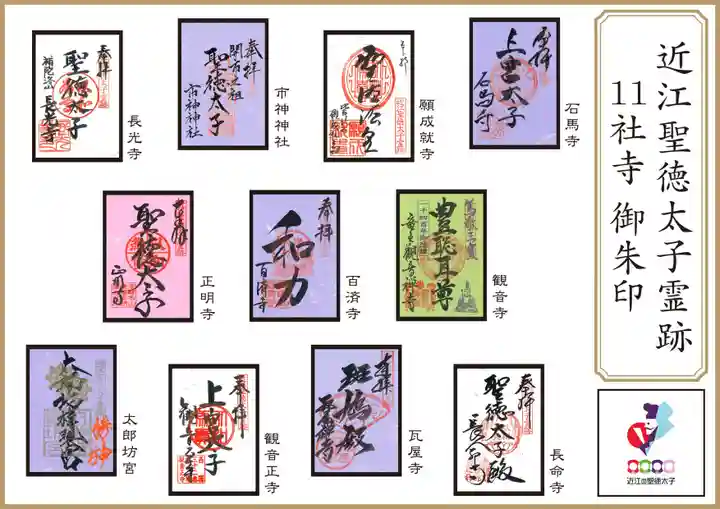 近江聖徳太子霊跡
11社寺 御朱印
石馬寺
奉拝
上宮太子
石馬寺
願成就寺
市神神社
奉拝
開市之祖
聖徳太子
市神神社
長光寺
奉拝
聖徳太子
補陀洛山 長光寺
観音寺
豊聡耳尊
百済寺
奉拝
和力
百済寺
正明寺
聖徳太子
正明寺
長命寺
奉拝
聖徳太子殿
長命寺
瓦屋寺
奉拝
斑鳩殿
瓦屋寺
観音正寺
奉拝
上宮太子
観音正寺
太郎坊宮
近江の聖徳太子